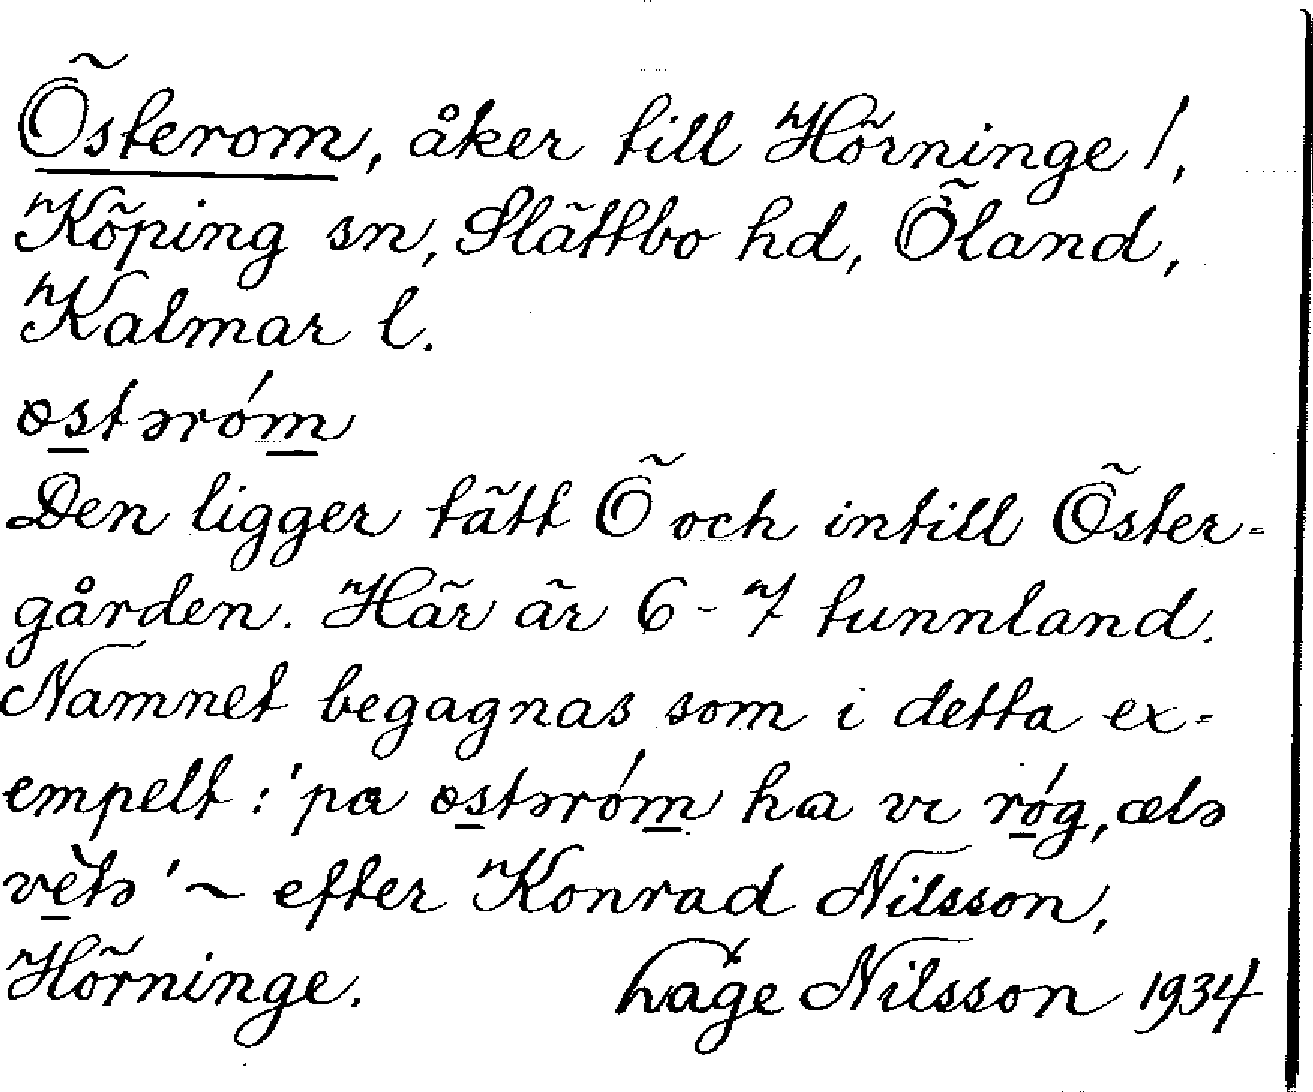 Österom, åker till Hörninge /,
Köping sn, Slättbo hd, Öland,
Kalmar l.
ɷstəróm
Den ligger tätt Ö och intill Öster-
gården. Här är 6-7 tunnland.
Namnet begagnas som i detta ex-
empelt: 'pa ɷstəróm ha vɩ róg, ælə
vètə' ~ efter Konrad Nilsson,
Hörninge. håge Nilsson 1934